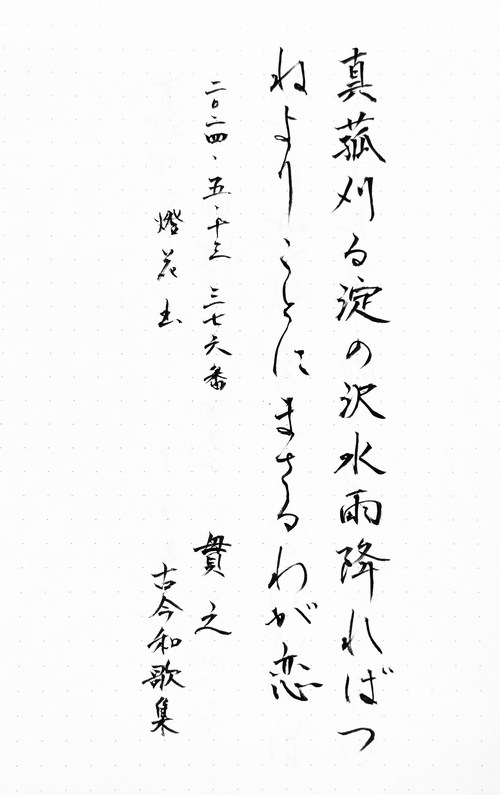 真菰刈る淀の沢水雨降ればつ
ねよりことにまさるわが恋
二〇二四、五、十三 三七六番
貫之
燈花书
古今和歌集